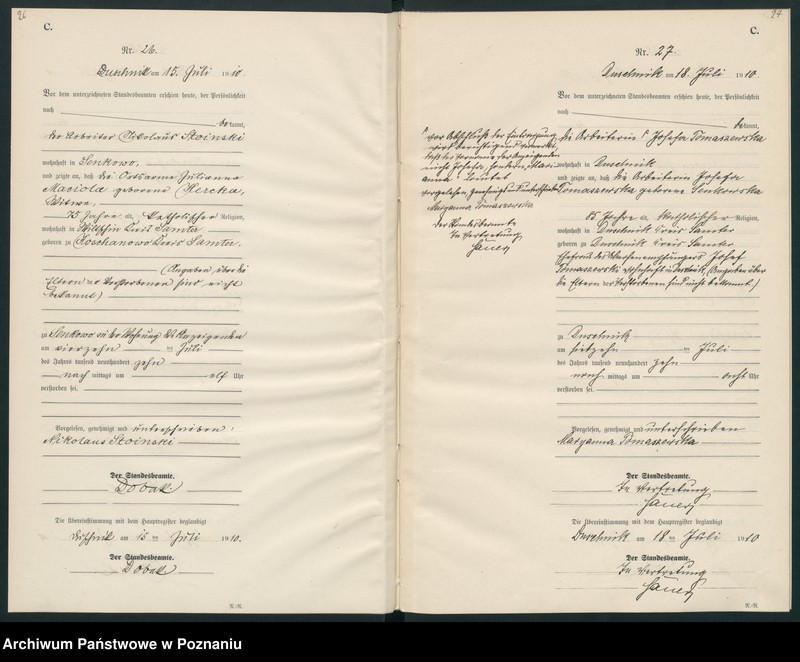 26
C.
Nr. 26.
Duschnik am 15. Juli 1910
Vor dem unterzeichneten Standesbeamten erschien heute, der Persönlichkeit
nach
bekannt,
der Arbeiter Nikolaus Stoinski
wohnhaft in Senkowo,
und zeigte an, daß die Ortsarme Julianna
Maciola geborene
Witwe,
75 Jahre alt, Katholischer Religion,
wohnhaft in Kreis Samter
geboren zu Kreis Samter,
(Angaben über die
Eltern der Verstorbenen sind nicht
bekannt)
zu Senkowo in der Wohnung des Anzeigenden
am vierzehn ten Juli
des Jahres tausend neunhundert zehn
nach mittags um elf Uhr
verstorben sei.
Vorgelesen, genehmigt und unterschrieben
Nikolaus Stoinski
Der Standesbeamte.
Dobak
Die Übereinstimmung mit dem Hauptregister beglaubigt
Duschnik am 15 ten Juli 1910.
Der Standesbeamte.
Dobak
R.-R.
27
C.
Nr. 27.
Duschnik am 18. Juli 1910.
Vor dem unterzeichneten Standesbeamten erschien heute, der Persönlichkeit
nach
bekannt,
die Arbeiterin Josefa Tomaszewska
wohnhaft in Duschnik
und zeigte an, daß die Arbeiterin Josefa
Tomaszewska geborene Senkowska
85 Jahre alt, Katholischer Religion,
wohnhaft in Duschnik Kreis Samter
geboren zu Duschnik Kreis Samter
Ehefrau des Josef
Tomaszewski wohnhaft in Duschnik, (Angaben über
die Eltern der Verstorbenen sind nicht bekannt.)
zu Duschnik
am ten Juli
des Jahres tausend neunhundert zehn
nach mittags um acht Uhr
verstorben sei.
Vorgelesen, genehmigt und unterschrieben
Maryanna Tomaszewska
Der Standesbeamte.
In Vertretung
Die Übereinstimmung mit dem Hauptregister beglaubigt
Duschnik am 18 ten Juli 1910
Der Standesbeamte.
In Vertretung
R.-R.
vor Abschluß der Eintragung
wird berichtigend vermerkt,
daß der Vorname der Anzeigenden
nicht Josefa, sondern Mari-
anna lautet
vorgelesen genehmigt unterschrieben
Maryanna Tomaszewska
Der Standesbeamte
In Vertretung
Archiwum Państwowe w Poznaniu